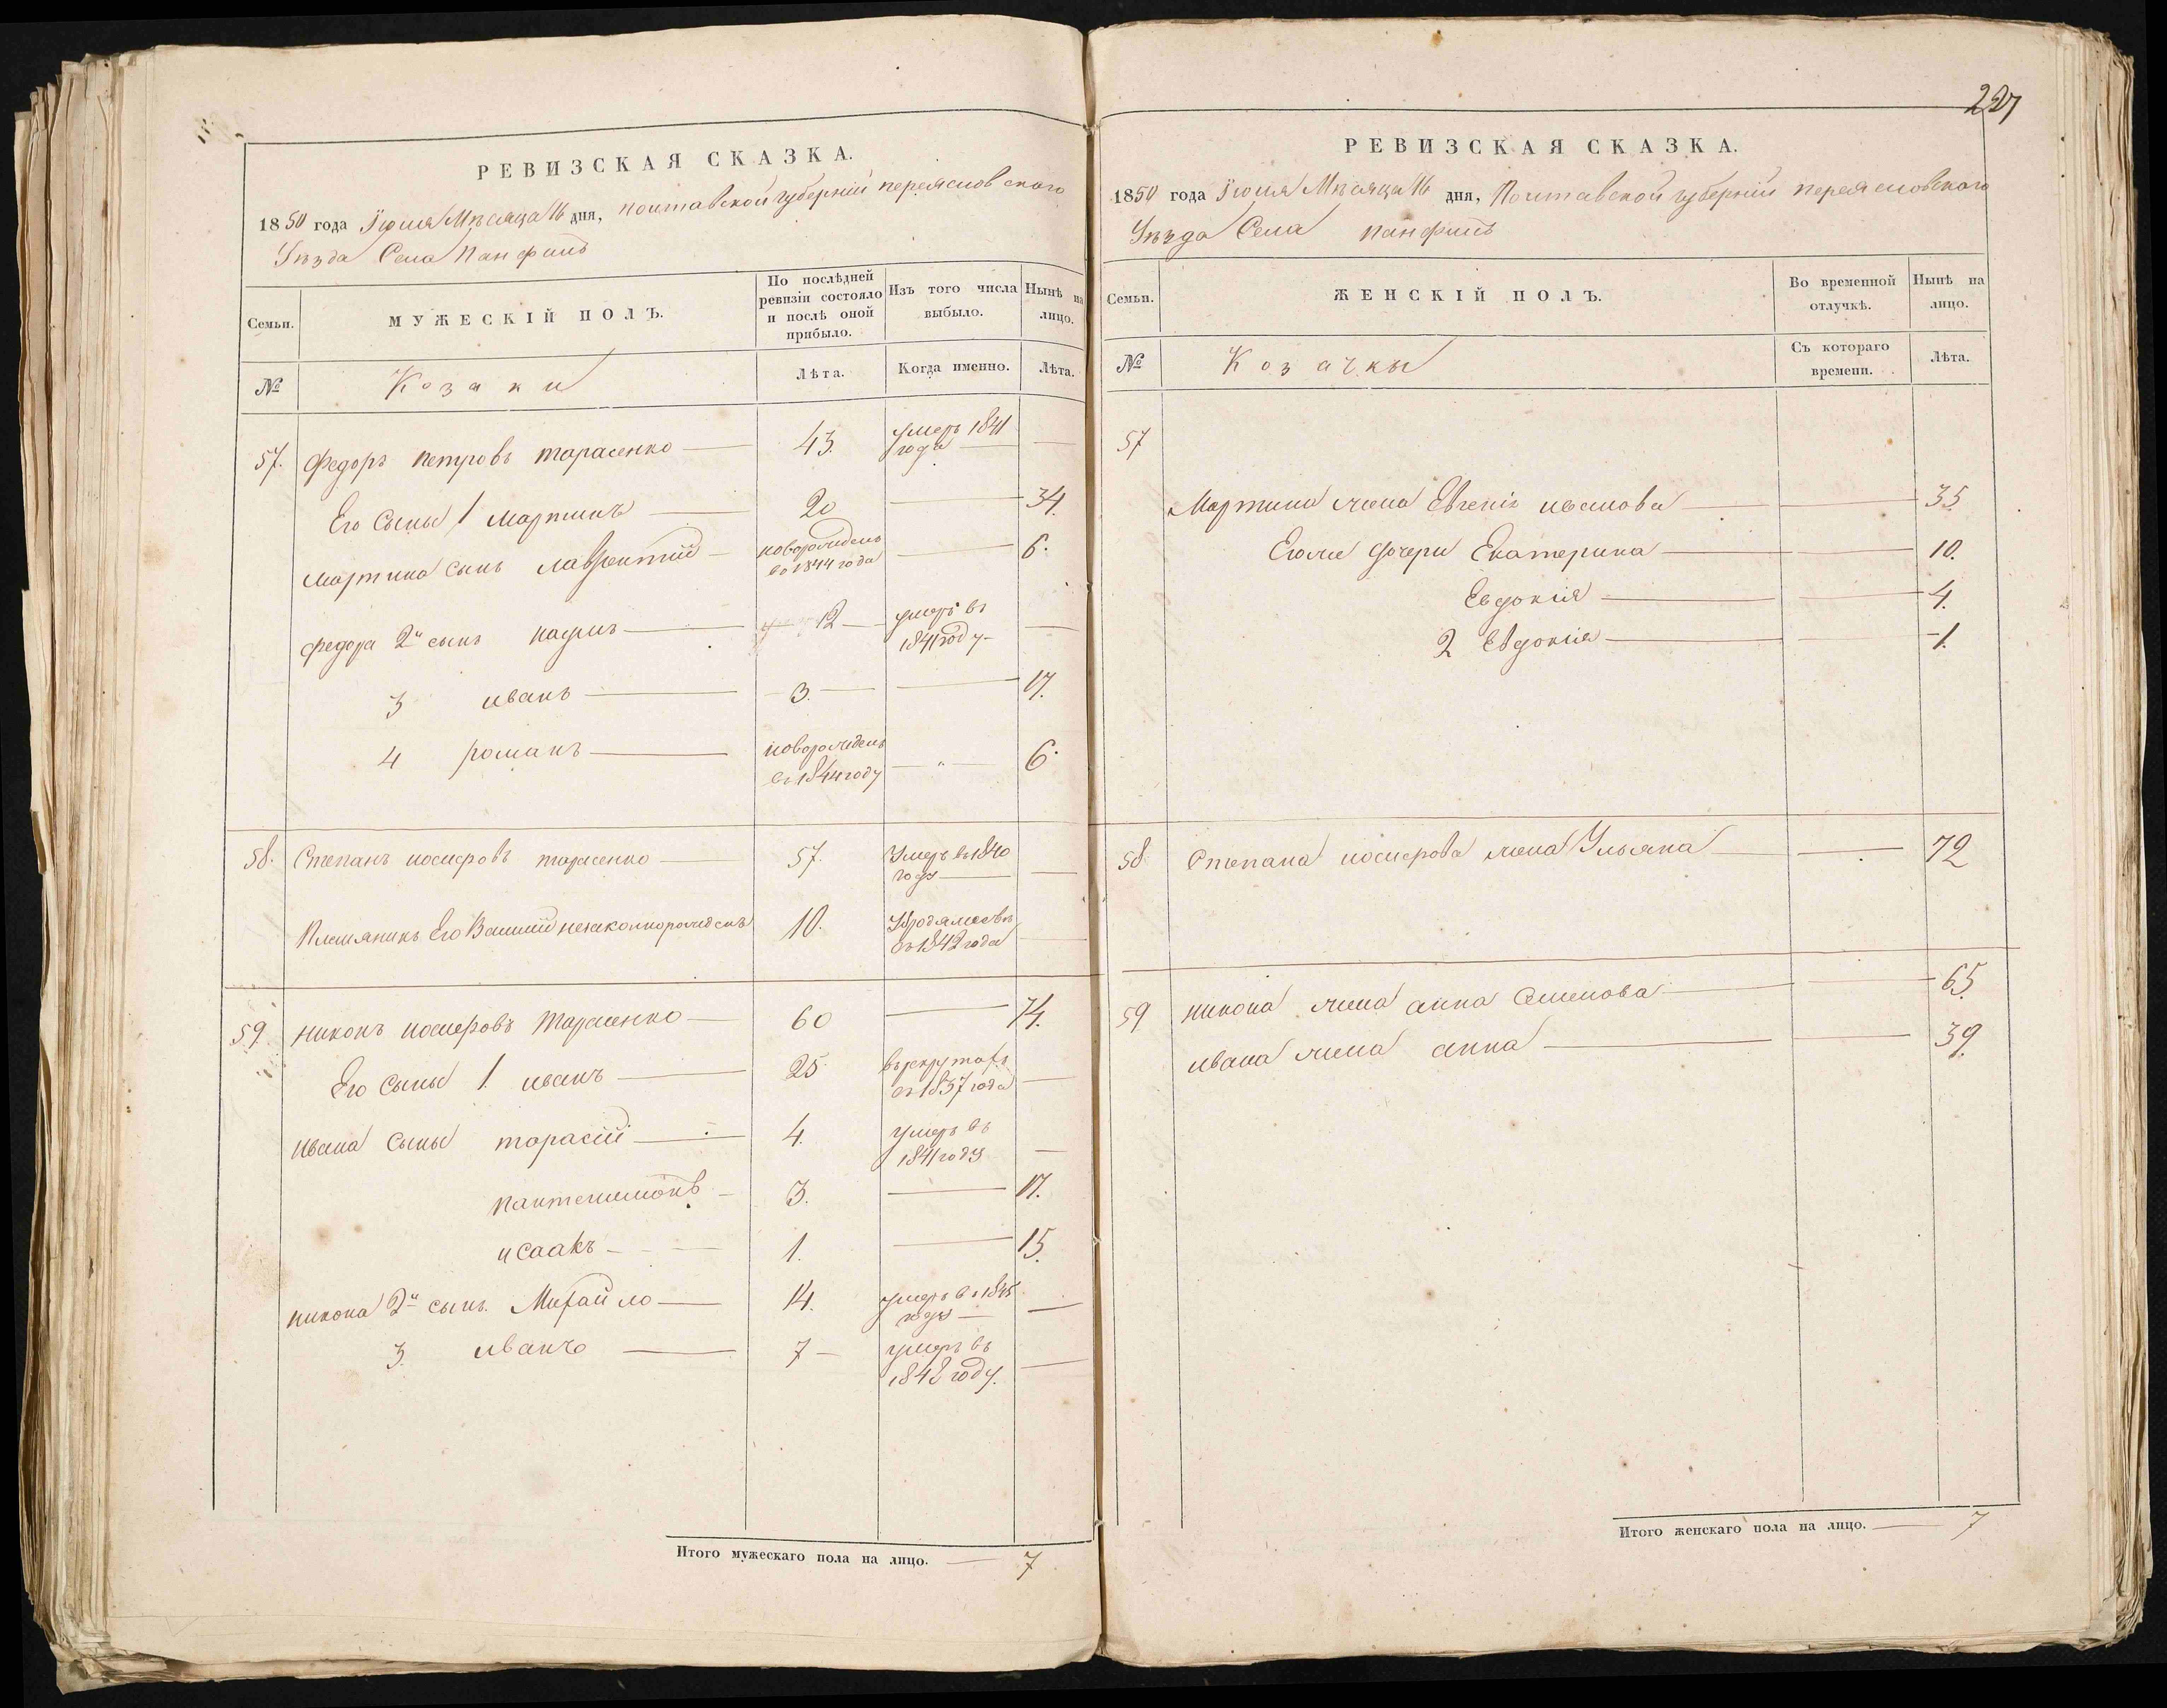 227
РЕВИЗСКАЯ СКАЗКА.
1850 года Июля Мѣсяца 16 дня, полтавской губерніи переяслов ского
Уѣзда Села Панфилъ
Семьи.
МУЖЕСКІЙ ПОЛЪ.
По послѣдней ревизіи состояло и послѣ оной прибыло.
Изъ того числа выбыло.
Нынѣ на лицо.
№
Козаки
Лѣта.
Когда именно.
Лѣта.
57. Федоръ Петровъ тарасенко 43. умеръ 1841 года
Его Сыны 1 мартинъ 20 34.
мартина сынъ лаврентий новорожденъ во 1844 года 6.
федора 2й сынъ 12 умеръ въ 1841 году
3 иванъ 3. 17.
4 романъ новорожденъ въ 1844 году 6.
58. Степанъ иосифовъ тарасенко 57. Умеръ въ 1840 году
Племяникъ Его Василий незаконнорожденъ 10. съ 1842 года
59. никонъ иосифовъ тарасенко 60 74.
Его Сыны 1. иванъ 25 въ рекрутахъ съ 1837 года
ивана Сыны тарасий 4. умеръ въ 1841 году
пантелимонъ 3. 17.
исаакъ 1. 15.
никона 2й сынъ. Михайло 14. умеръ въ 1845 году
3. иванъ 7 умеръ въ 1842 году.
Итого мужескаго пола на лицо. 7
РЕВИЗСКАЯ СКАЗКА.
1850 года Июля Мѣсяца 16 дня, Полтавской губерніи переясловского
Уѣзда Села панфилъ
Семьи.
ЖЕНСКІЙ ПОЛЪ.
Во временной отлучкѣ.
Нынѣ на лицо.
№
Козачкы
Съ котораго времени.
Лѣта.
57
Мартина жена Евгенія иванова 35
Егоже дочери Екатерина 10.
Евдокия 4.
2 Евдокия 1.
58 Степана иосифова жена Ульяна 72
59 никона жена анна Семенова 65.
ивана жена анна 39.
Итого женскаго пола на лицо. 7